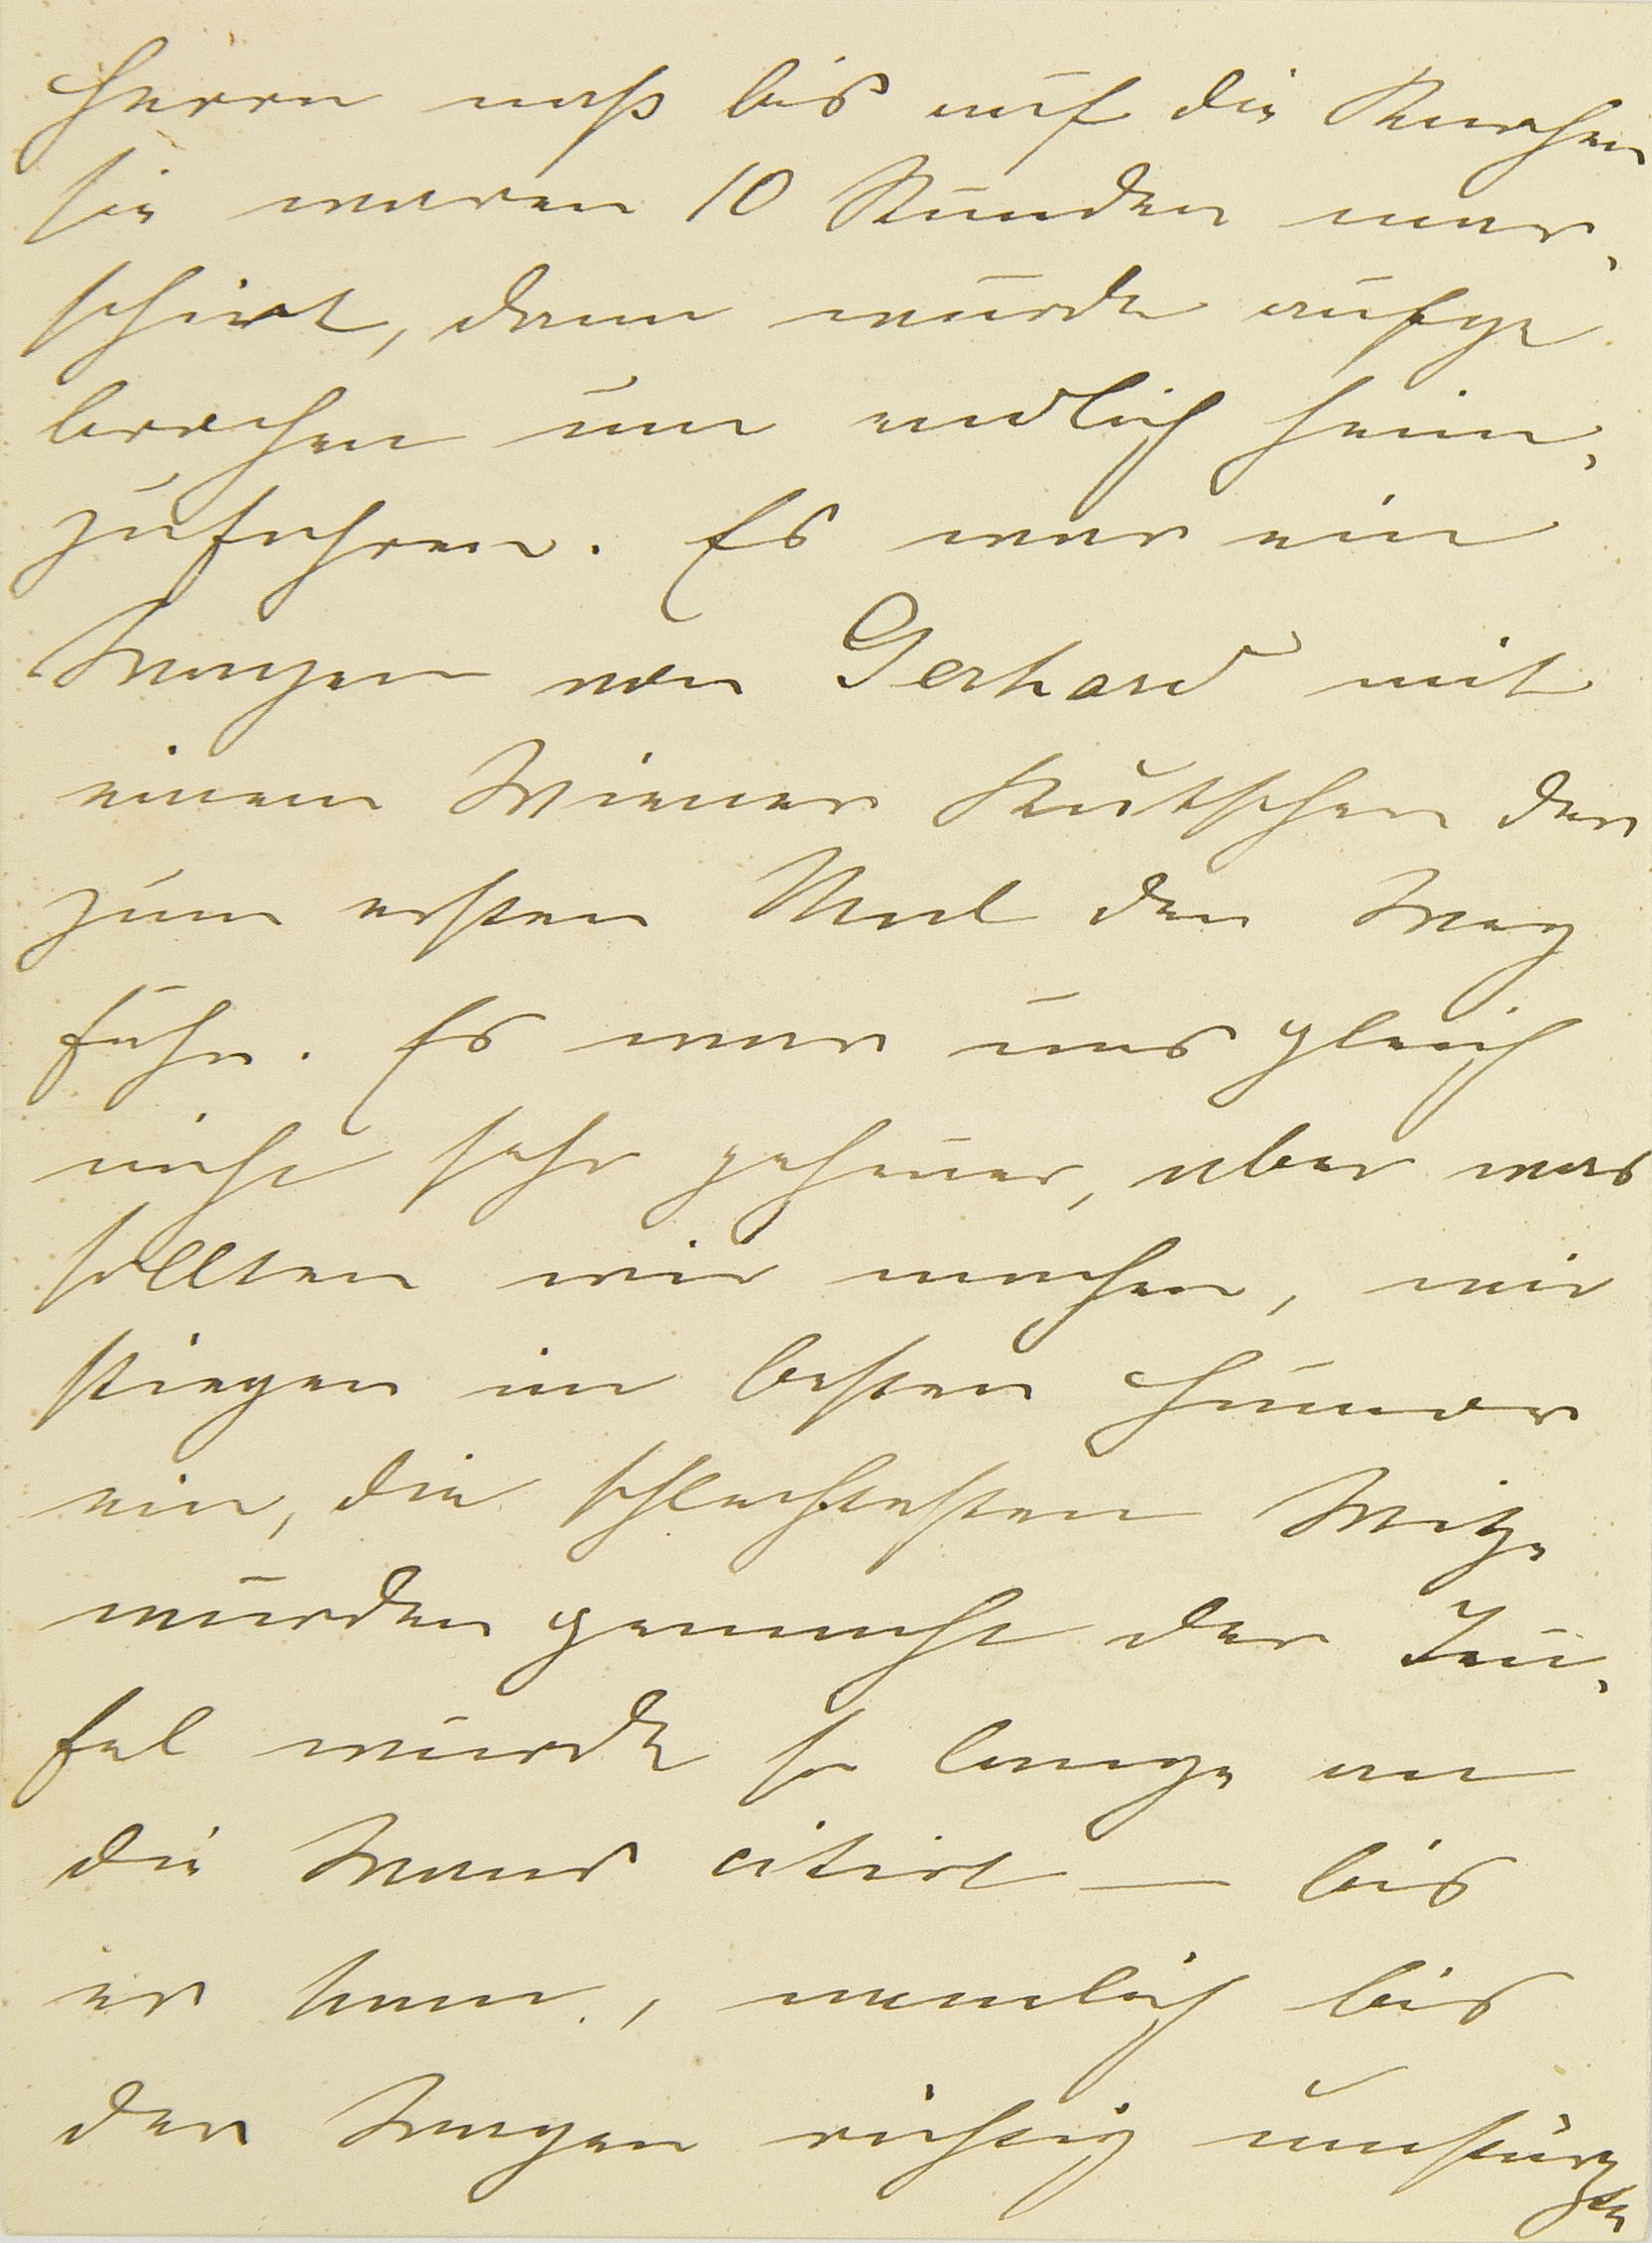 Herrn naß bis auf die Knochen
sie waren 10 Stunden mar-
schirt, dann wurde aufge
brochen um endlich heim-
zufahren. Es war ein
Wagen von Gerhard mit
einem Wiener Kutscher der
zum ersten Mal den Weg
fuhr. Es war uns gleich
nicht sehr geheuer, aber was
sollten wir machen, wir
stiegen im besten Humor
ein, die schlechtesten Witze
wurden gemacht der Teu-
fel wurde so lange an
die Wand citirt — bis
er kam, nemlich bis
der Wagen richtig umstürzte